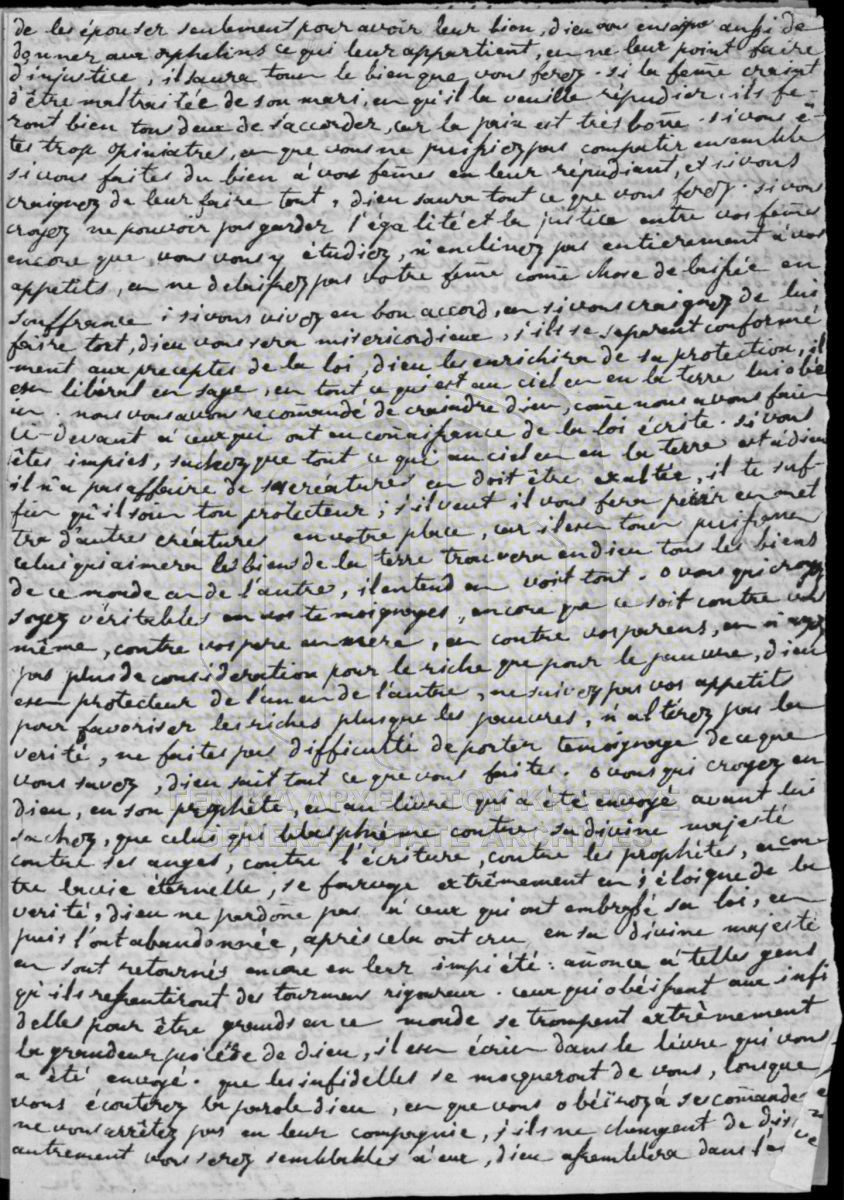 de les épouser seulement pour avoir leur bien, dieu vous enseigne aussi de
donner aux orphelins ce qui leur appartient, en ne leur point faire
d'injustice, il saura tout le bien que vous ferez. si la feme craint
d'être maltraitée de son mari, en qu'il la veuille répudier. ils fe-
ront bien tous deux de s'accorder, car la paix est très bone. si vous ê-
tes trop opiniatres, en que vous ne puissiez pas compatir ensemble
si vous faites du bien à vos femes en leur répudiant, et si vous
craignez de leur faire tort, dieu saura tout ce que vous ferez. si vous
croyez ne pouvoir pas garder l'égalité et la justice entre vos femes
encore que vous vous y étudiez, n'enclinez pas entierement à vos
appetits, en ne delaissez pas votre feme come chose delaissée en
souffrance ; si vous vivez en bon accord, en si vous craignez de lui
faire tort, dieu vous sera misericordieux, s'ils se separent conformé
ment aux preceptes de la loi, dieu les enrichira de sa protection, il
esn libéral en sage, en tout ce qui est au ciel en en la terre lui obé
in. nous vous avons recomandé de craindre dieu, come nous avons fait
ci-devant à ceux qui ont eu conaissance de la loi écrite. si vous
êtes impies, sachez que tout ce qui au ciel en en la terre est à dieu
il n'a pas affaire de ses créatures en doit être exalté, il te suf-
fin qu'il soin ton protecteur ; s'il veut il vous fera périr en met
tra d'autres créatures en votre place, car il esn tout puissann
celui qui aimera les biens de la terre trouvera en dieu tous les biens
de ce monde en de l'autre, il entend en voit tout. o vous qui croyez
soyez véritables en vos temoignages, encore que ce soit contre vous
même, contre vos pere en mere, en contre vos parens, en n'ayez
pas plus de consideration pour le riche que pour le pauvre, dieu
esn protecteur de l'un en de l'autre, ne suivez pas vos appetits
pour favoriser les riches plus que les pauvres, n'altérez pas la
verité, ne faites pas difficulté de porter temoignage de ce que
vous savez, dieu sait tout ce que vous faites. o vous qui croyez en
dieu, en son prophête, en au livre qui a été envoyé avant lui
sachez, que celui qui blasphème contre sa divine majesté
contre ses anges, contre l'écriture, contre les prophêtes, en con-
tre la vie éternelle, se fourvoye extrêmement en s'éloigne de la
verité, dieu ne pardone pas à ceux qui ont embrassé sa loi, en
puis l'ont abandonnée, après cela ont cru en sa divine majesté
en sont retournés encore en leur impiété : anonce à telles gens
qu'ils ressentiront des tourmens rigoureux. ceux qui obéissent aux infi
delles pour être grands en ce monde se trompent extrêmement
la grandeur procède de dieu, il esn écrin dans le livre qui vous
a été envoyé. que les infidelles se moqueront de vous, lorsque
vous écouterez la parole dieu, en que vous obéirez à ses comande
ne vous arrêtez pas en leur compagnie, s'ils ne changent de
autrement vous serez semblables à eux, dieu assemblera dans
ΓΕΝΙΚΑ ΑΡΧΕΙΑ ΤΟΥ ΚΡΑΤΟΥΣ
GENERAL STATE ARCHIVES